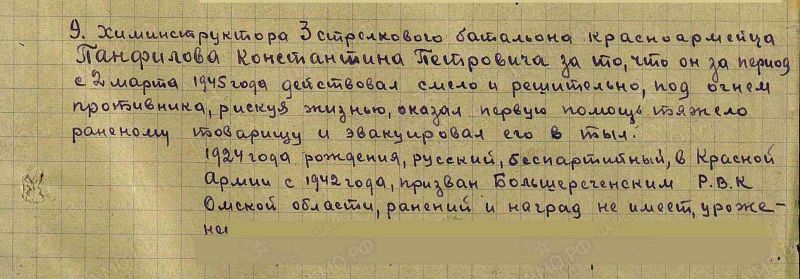 9. Химинструктора 3 стрелкового батальона красноармейца
Панфилова Константина Петровича за то, что он за период
с 2 марта 1945 года действовал смело и решительно, под огнем
противника, рискуя жизнью, оказал первую помощь тяжело
раненому товарищу и эвакуировал его в тыл.
1924 года рождения, русский, беспартийный, в Красной
Армии с 1942 года, призван Большереченским Р.В.К
Омской области, ранений и наград не имеет, уроже-
нец